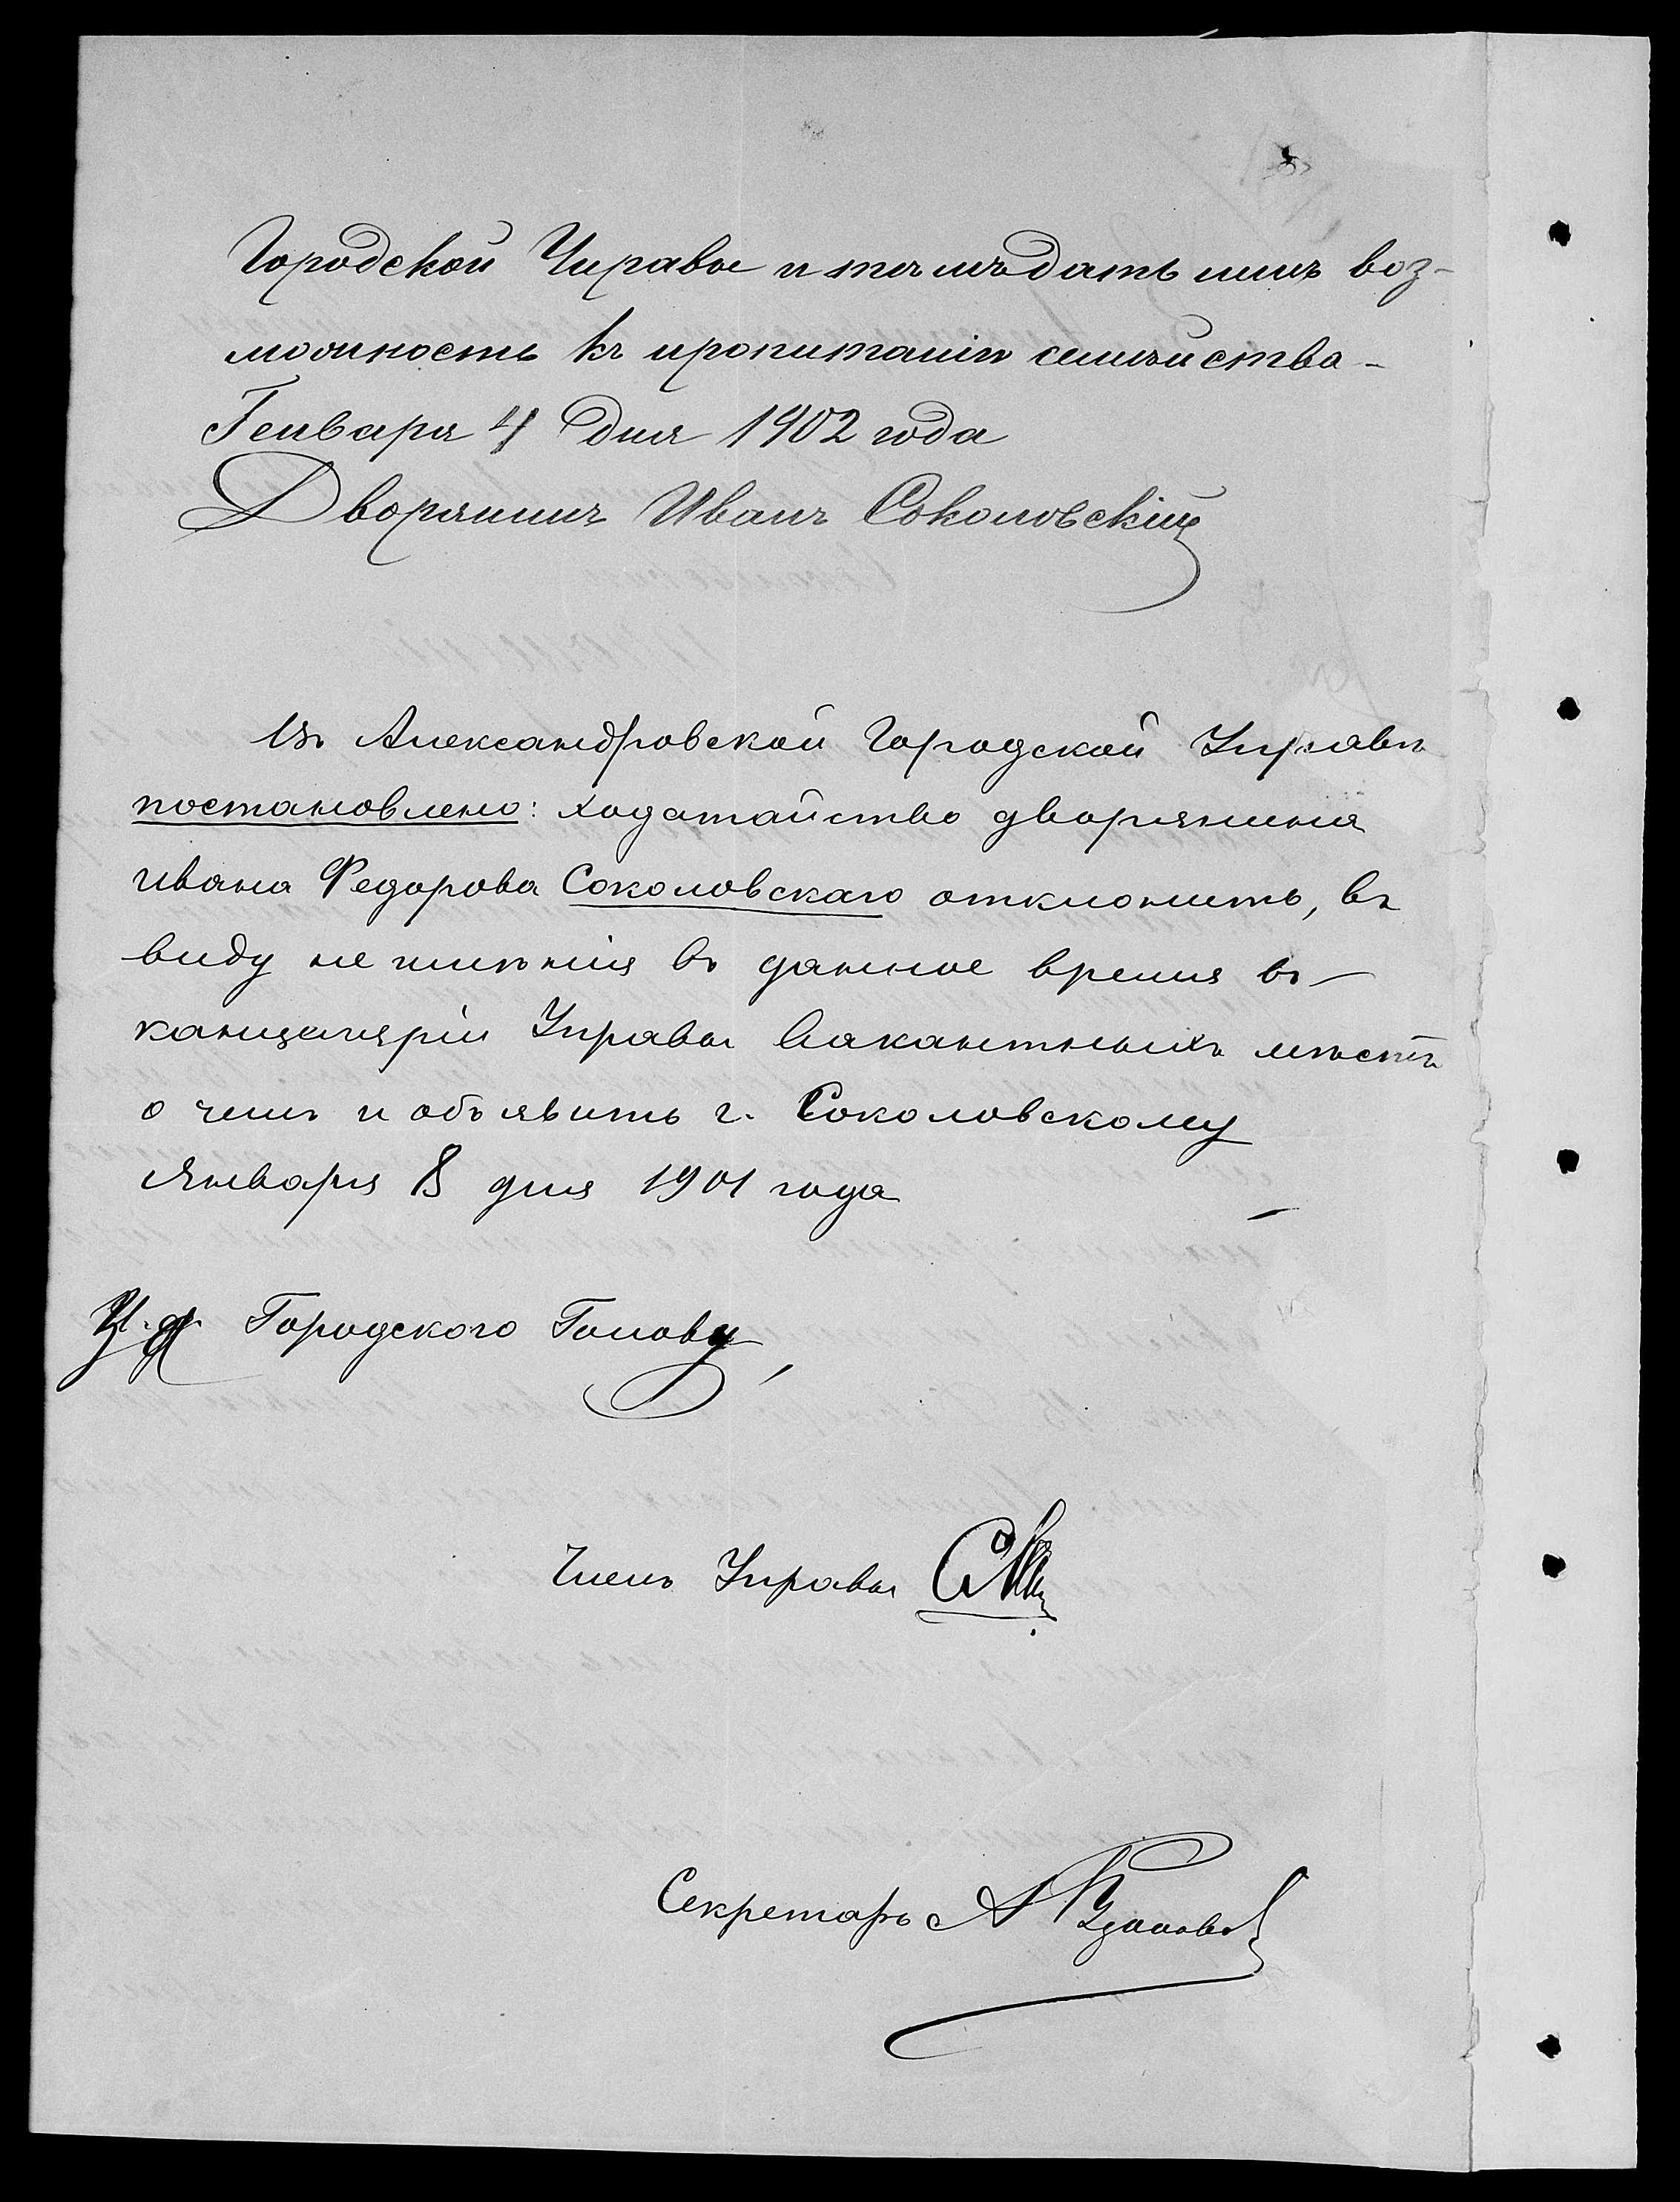 Городской Управы и темъ дать мнѣ воз-
можность къ пропитанію семейства -
Генваря 4 дня 1902 года
Дворянинъ Иванъ Соколовскій
Въ Александровской Городской Управѣ
постановлено: ходатайство дворянина
Ивана Федорова Соколовскаго отклонить, въ
виду не имѣнія въ данное время въ
канцеляріи Управы вакантныхъ мѣстъ
о чемъ и объявить г. Соколовскому
Января 8 дня 1901 года
И. д. Городского Головы
Членъ Управы
Секретарь